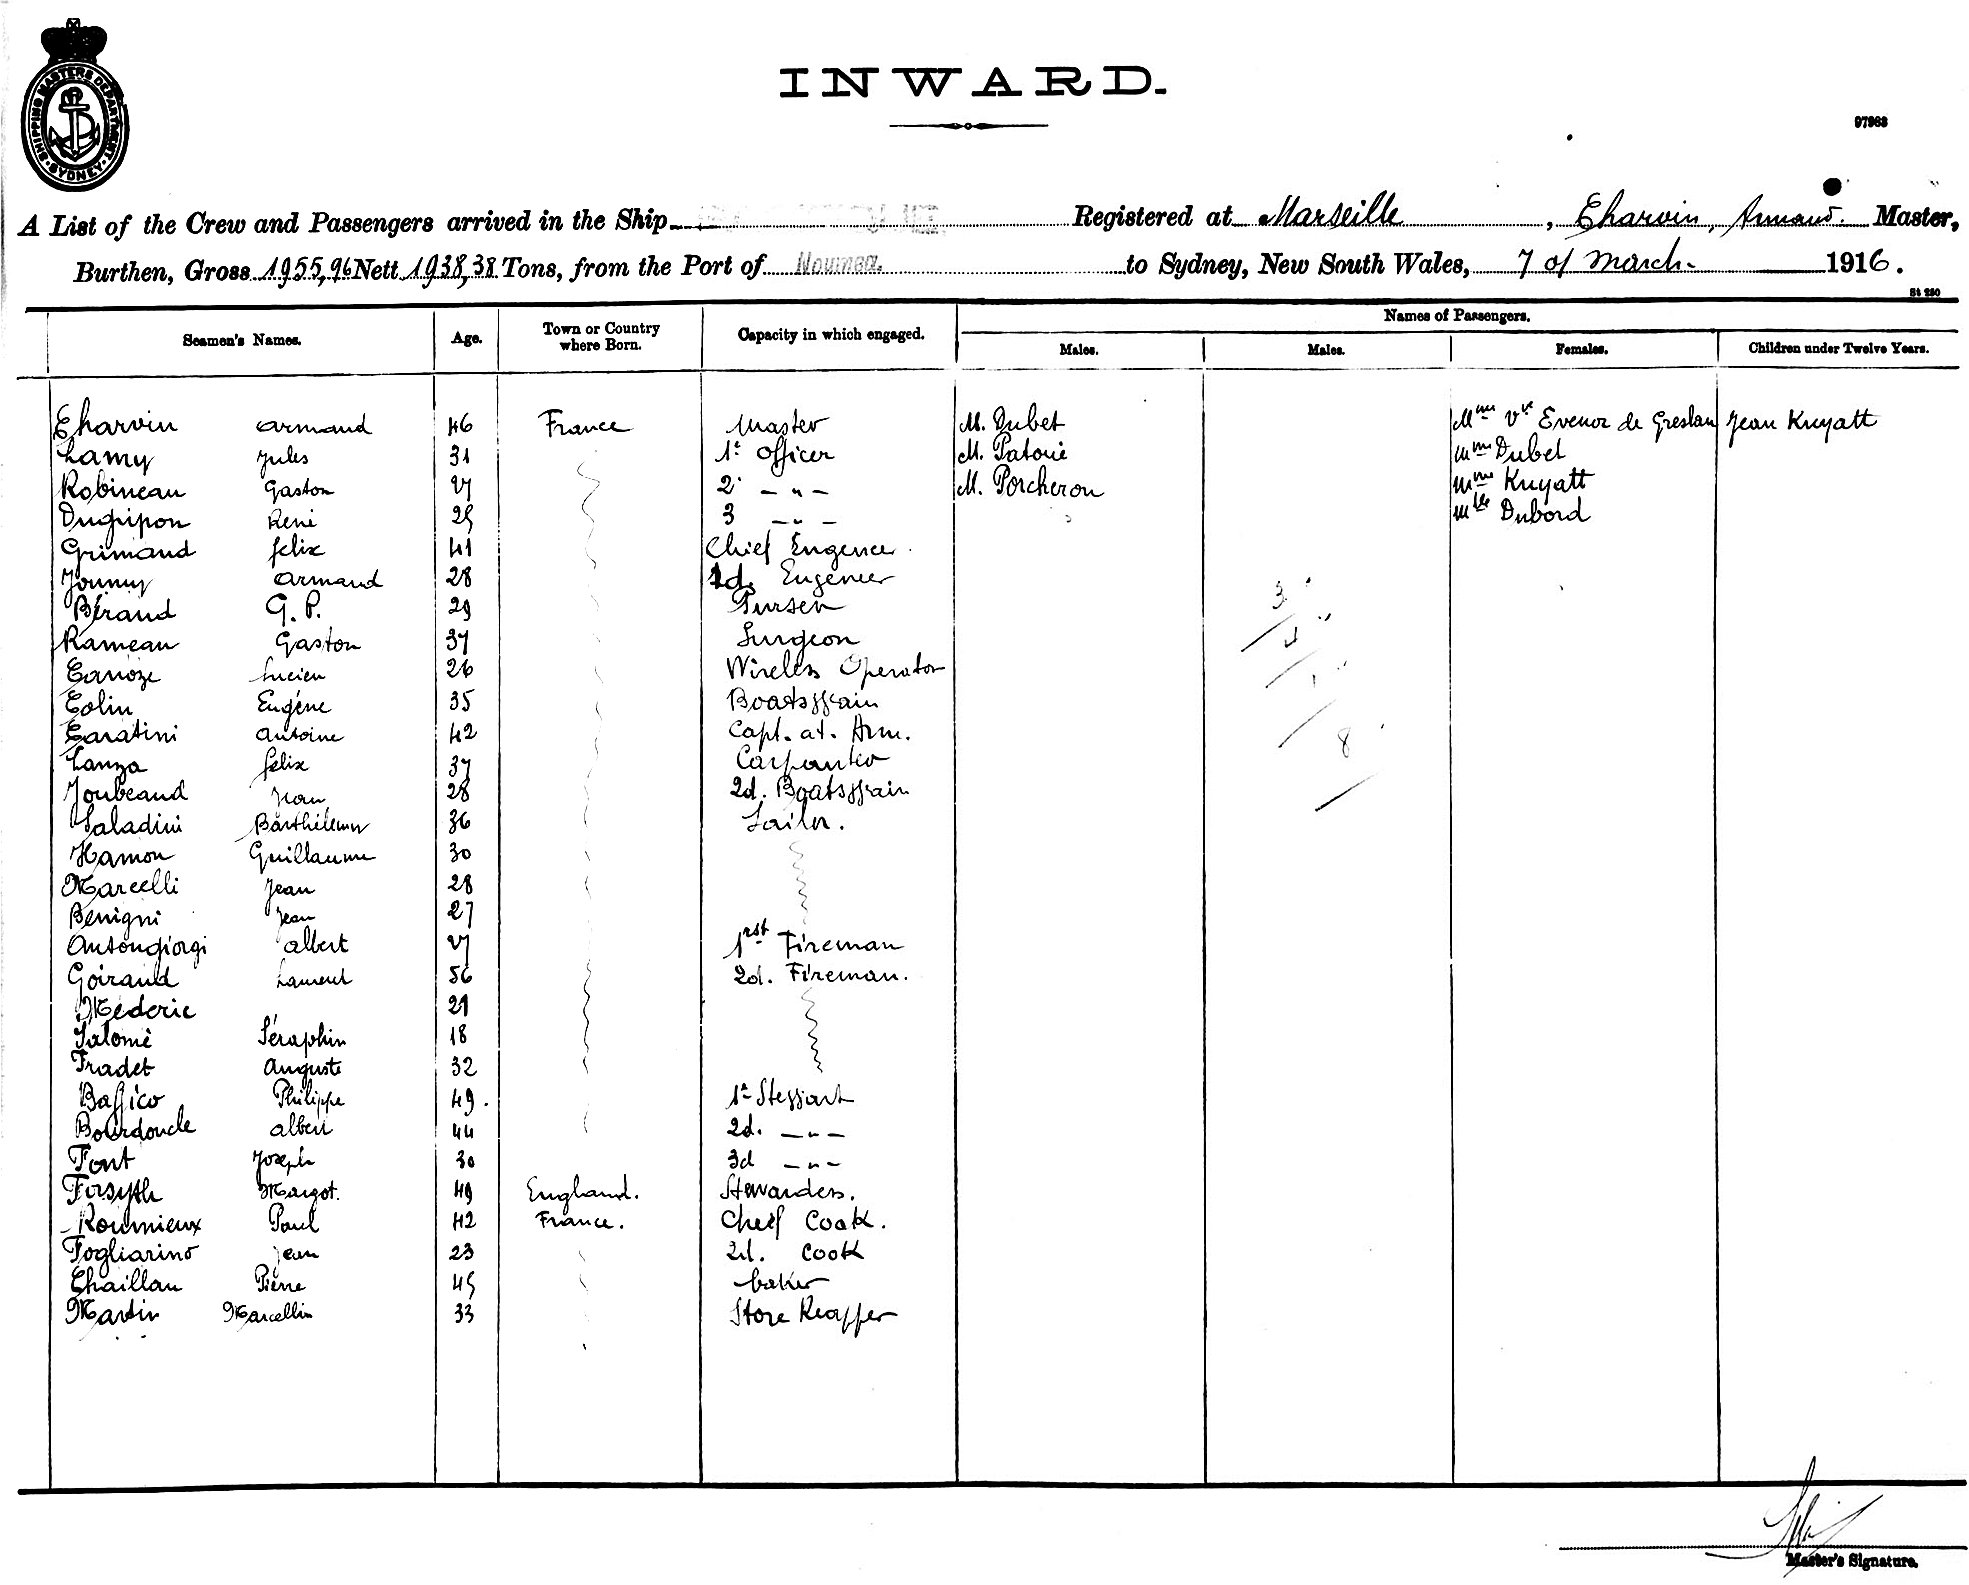 SHIPPING MASTERS DEPARTMENT · SYDNEY ·
INWARD.
97963
A List of the Crew and Passengers arrived in the Ship Registered at Marseille, Charvin, Armand. Master,
Burthen, Gross 1955,96 Nett 1938,38 Tons, from the Port of Noumea. to Sydney, New South Wales, 7 of March 1916.
St 230
Seamen's Names. Age. Town or Country where Born. Capacity in which engaged. Names of Passengers.
Males. Males. Females. Children under Twelve Years.
Charvin Armand 46 France Master M. Dubet Mme Vve Evenor de Greslan Jean Kuyatt
Lamy Jules 31 1r Officer M. Patouie Mme Dubet
Robineau Gaston 27 2 - " - M. Porcheron Mme Kuyatt
Dugripon René 25 3 - " - Mlle Dubord
Grimaud felix 41 Chief Engeneer
Armand 28 2d. Engeneer
Béraud G. P. 29 Purser
Rameau Gaston 37 Surgeon
Canoze Lucien 26 Wireless Operator
Colin Eugéne 35 Boatsssain
Caratini Antoine 42 Capt. at. Arm.
Lanza felix 37 Carpanter
Joubeaud Jean 28 2d. Boatsssain
Saladini Barthélemy 36 Sailor.
Hamon Guillaume 30
Marcelli Jean 28
Benigni Jean 27
Antongiorgi Albert 27 1rst Fireman
Goiraud Laurent 56 2d. Fireman.
Méderic 21
Salomé Séraphin 18
Fradet Auguste 32
Baffico Philippe 49. 1r Stessart
Bourdoncle Albert 44 2d. - " -
Font Joseph 30 3d - " -
Forsyth Margot. 49 England. Stewardess.
Roumieux Paul 42 France. Cheef Cook.
Fogliarino Jean 23 2d. Cook
Chaillan Pierre 45 baker
Martin Marcellin 33 Store Keapper
3
8
Master's Signature.